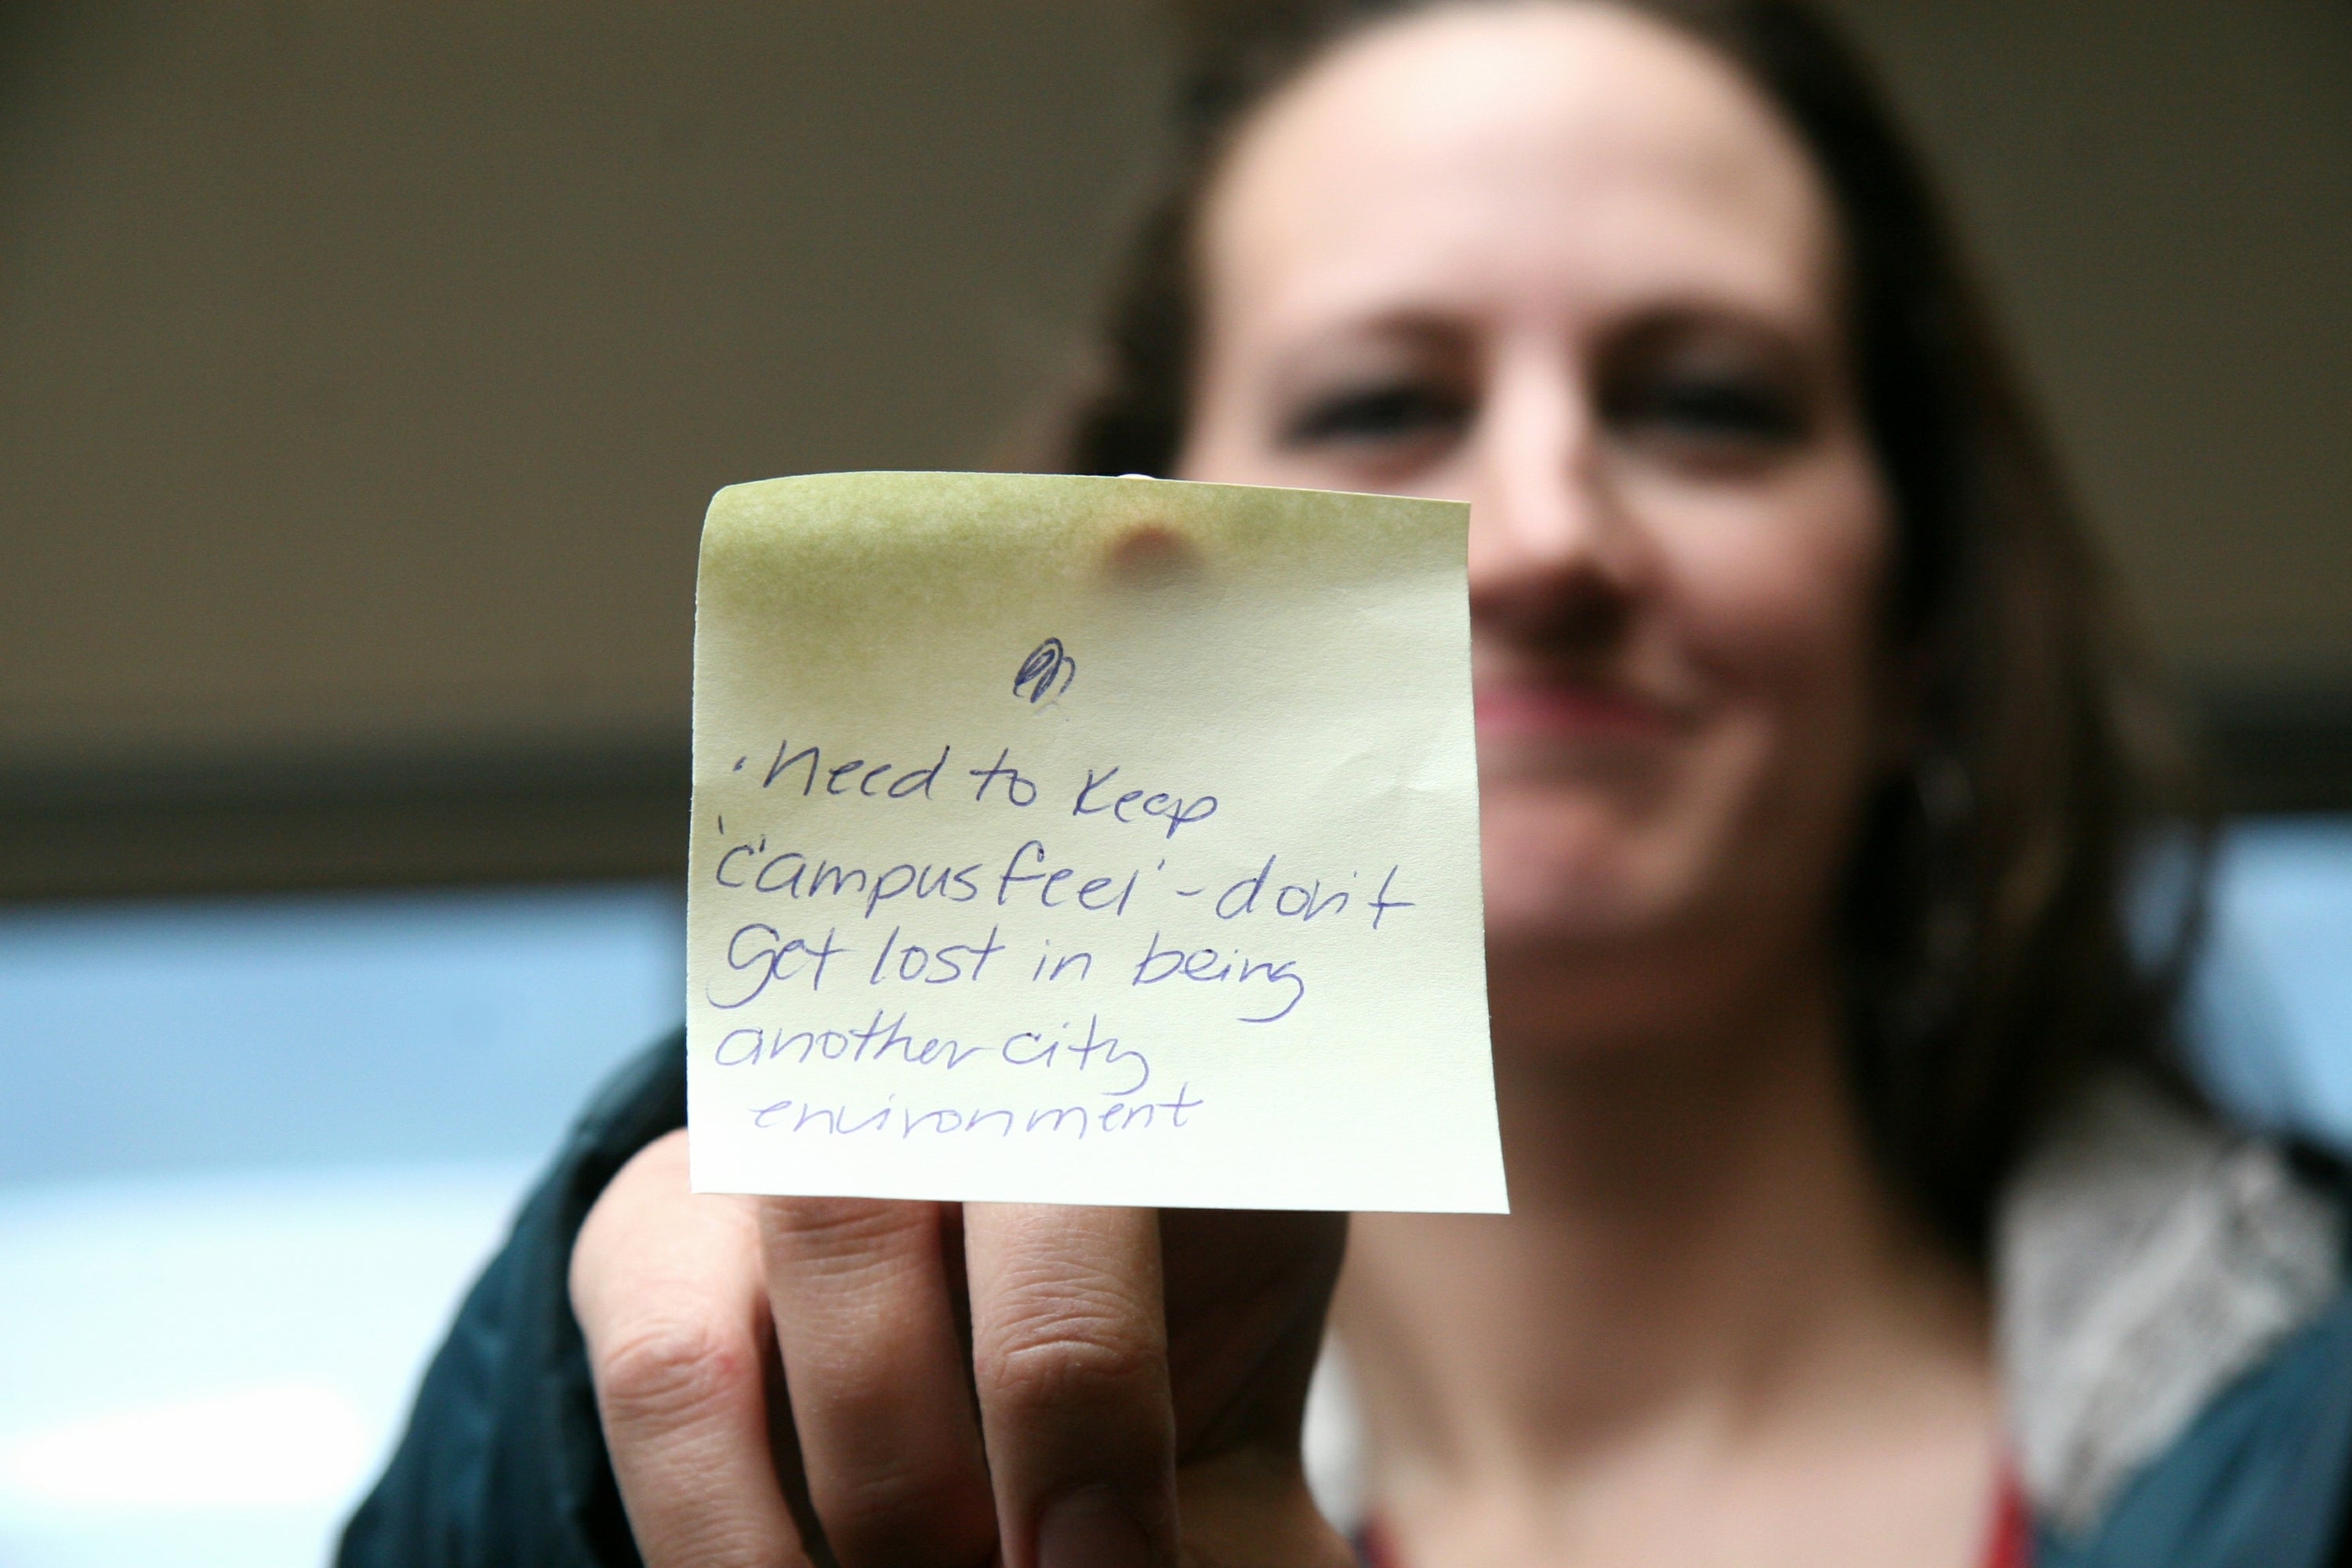 • need to keep
'campus feel' - don't
get lost in being
another city
environment